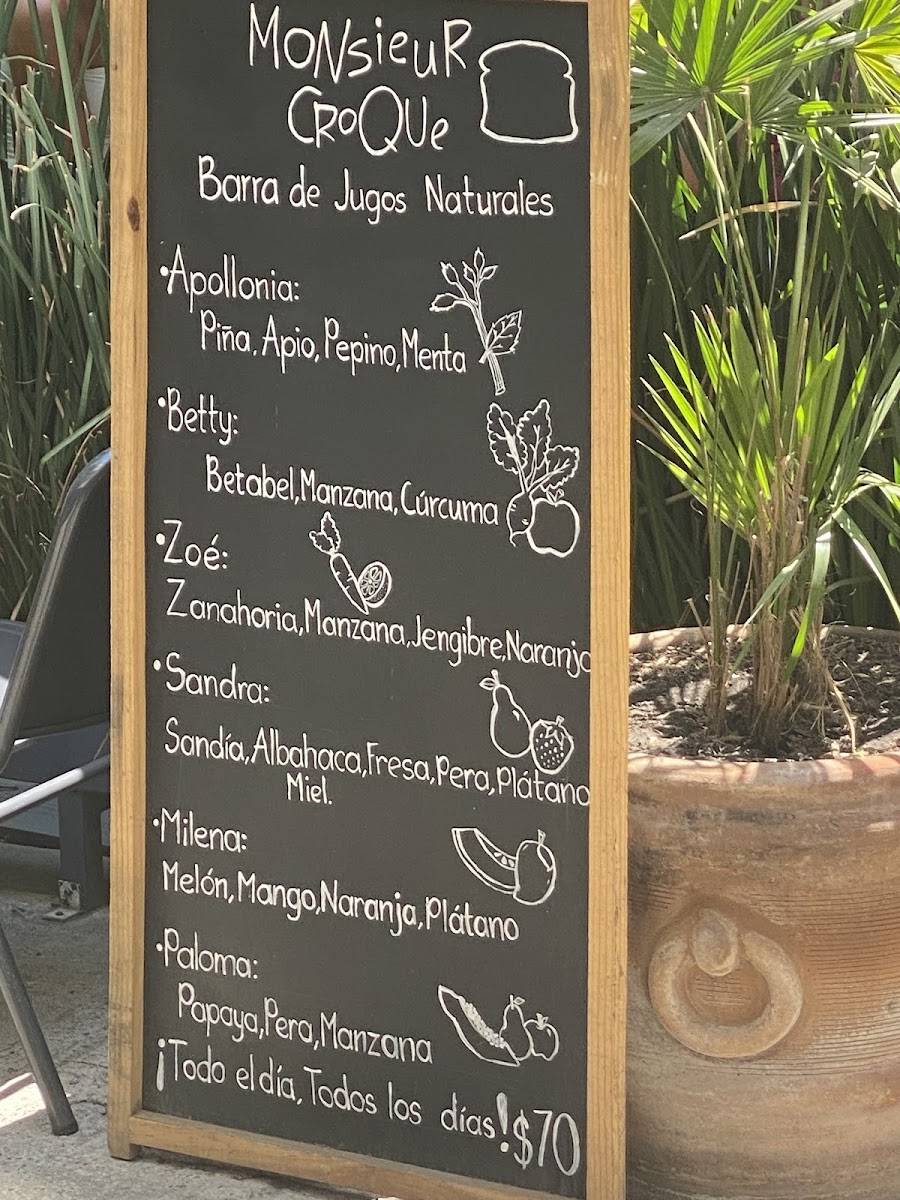 MONsieuR
CRoQUe
Barra de Jugos Naturales
•Apollonia:
Piña, Apio, Pepino, Menta
•Betty:
Betabel, Manzana, Cúrcuma
•Zoé:
Zanahoria, Manzana, Jengibre, Naranja
•Sandra:
Sandía, Albahaca, Fresa, Pera, Plátano
Miel.
•Milena:
Melón, Mango, Naranja, Plátano
•Paloma:
Papaya, Pera, Manzana
¡Todo el día, Todos los días! $70